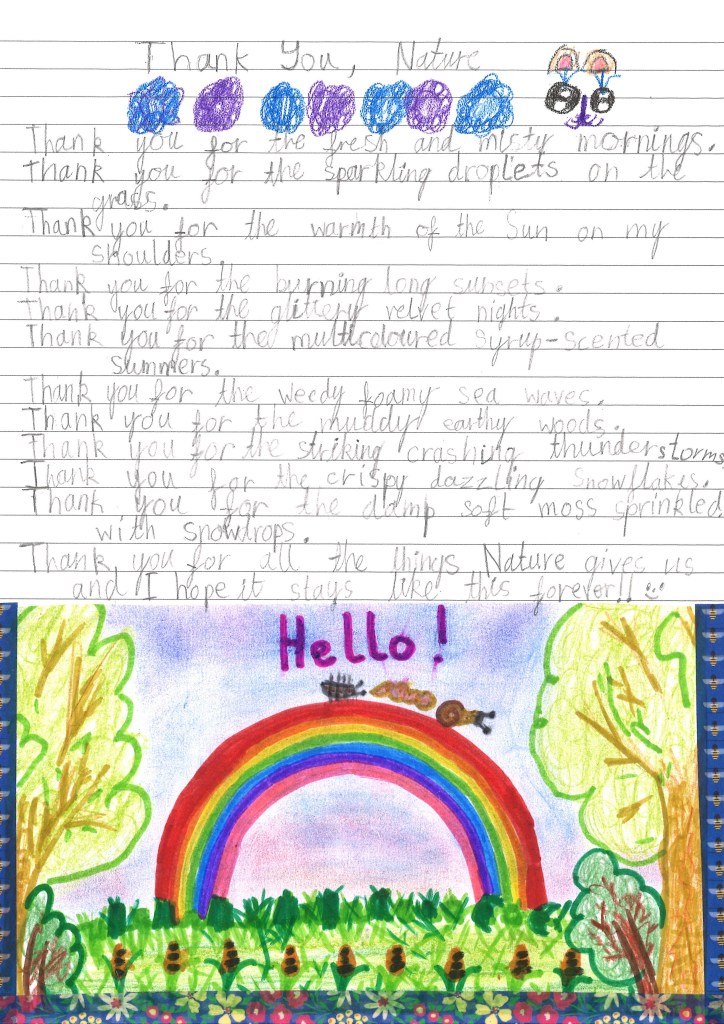 Thank You, Nature
Thank you for the fresh and misty mornings.
Thank you for the sparkling droplets on the
grass.
Thank you for the warmth of the Sun on my
shoulders.
Thank you for the burning long sunsets.
Thank you for the glittery velvet nights.
Thank you for the multicoloured syrup-scented
summers.
Thank you for the weedy foamy sea waves.
Thank you for the muddy earthy woods.
Thank you for the striking crashing thunderstorms.
Thank you for the crispy dazzling snowflakes.
Thank you for the damp soft moss sprinkled
with snowdrops.
Thank you for all the things Nature gives us
and I hope it stays like this forever!!
Hello!